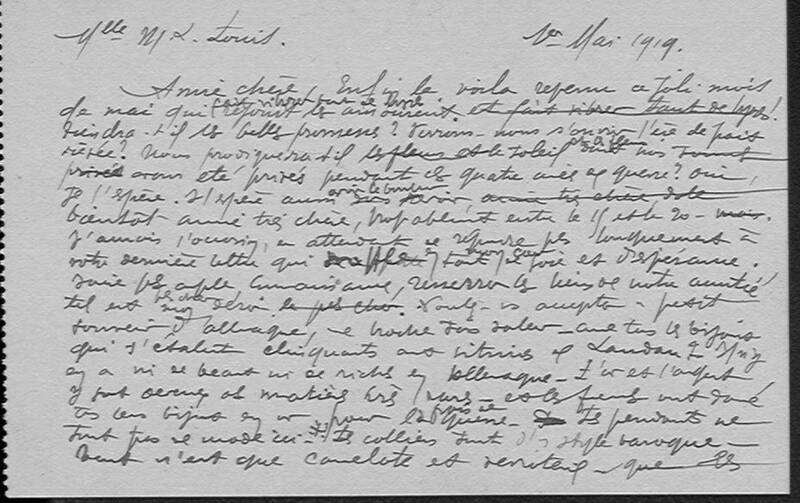 Mlle M L. Louis. 1er Mai 1919.
Amie chère, Enfin le voila revenu ce joli mois
fait vibrer tant de lyres
de mai qui réjouit les amoureux. et fait vibrer tant de lyres!
Tiendra-t-il les belles promesses? Verrons-nous s'ouvrir l'ère de paix
rêvée? Nous prodiguera-t-il les fleurs et le soleil dont nous
avons été privés pendant ces quatre années de guerre? Oui,
avoir le bonheur
Je l'espère. J'espère aussi vous revoir, amie très chère
bientôt amie très chère, probablement entre le 15 et le 20 mai.
J'aurais l'occasion, en attendant de répondre plus longuement à
votre dernière lettre qui tout joie et espérance.
plus ample connaissance, resserrer les liens de notre amitié
tel est désir le plus cher. Voulez-vous accepter petit
souvenir d'Allemagne, broche sans valeur comme tous les bijoux
qui s'étalent clinquants aux vitrines de Landau? Il n'y
en a ni de beaux ni de riches en Allemagne. L'or et l'argent
y sont devenus des matières très rares et les femmes ont donné
tous leurs bijoux en or pour la guerre. Les pendants ne
sont pas de mode ici. Les colliers sont d'un style baroque
Tout n'est que camelote et que